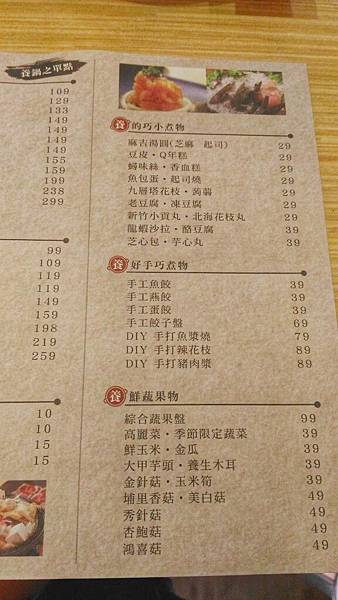 養鍋之單點
109
129
133
149
149
149
155
159
199
238
299
99
109
119
119
149
159
198
219
259
10
10
15
15
養 的巧小煮物
麻吉湯圓(芝麻 起司) 29
豆皮・Q年糕 29
蟳味絲・香血糕 29
魚包蛋・起司燒 29
九層塔花枝・蒟蒻 29
老豆腐・凍豆腐 29
新竹小貢丸・北海花枝丸 29
龍蝦沙拉・酪豆腐 39
芝心包・芋心丸 39
養 好手巧煮物
手工魚餃 39
手工燕餃 39
手工蛋餃 39
手工餃子盤 69
DIY 手打魚漿燒 79
DIY 手打辣花枝 89
DIY 手打豬肉漿 89
養 鮮蔬果物
綜合蔬果盤 99
高麗菜・季節限定蔬菜 39
鮮玉米・金瓜 39
大甲芋頭・養生木耳 39
金針菇・玉米筍 39
埔里香菇・美白菇 49
秀針菇 49
杏鮑菇 49
鴻喜菇 49